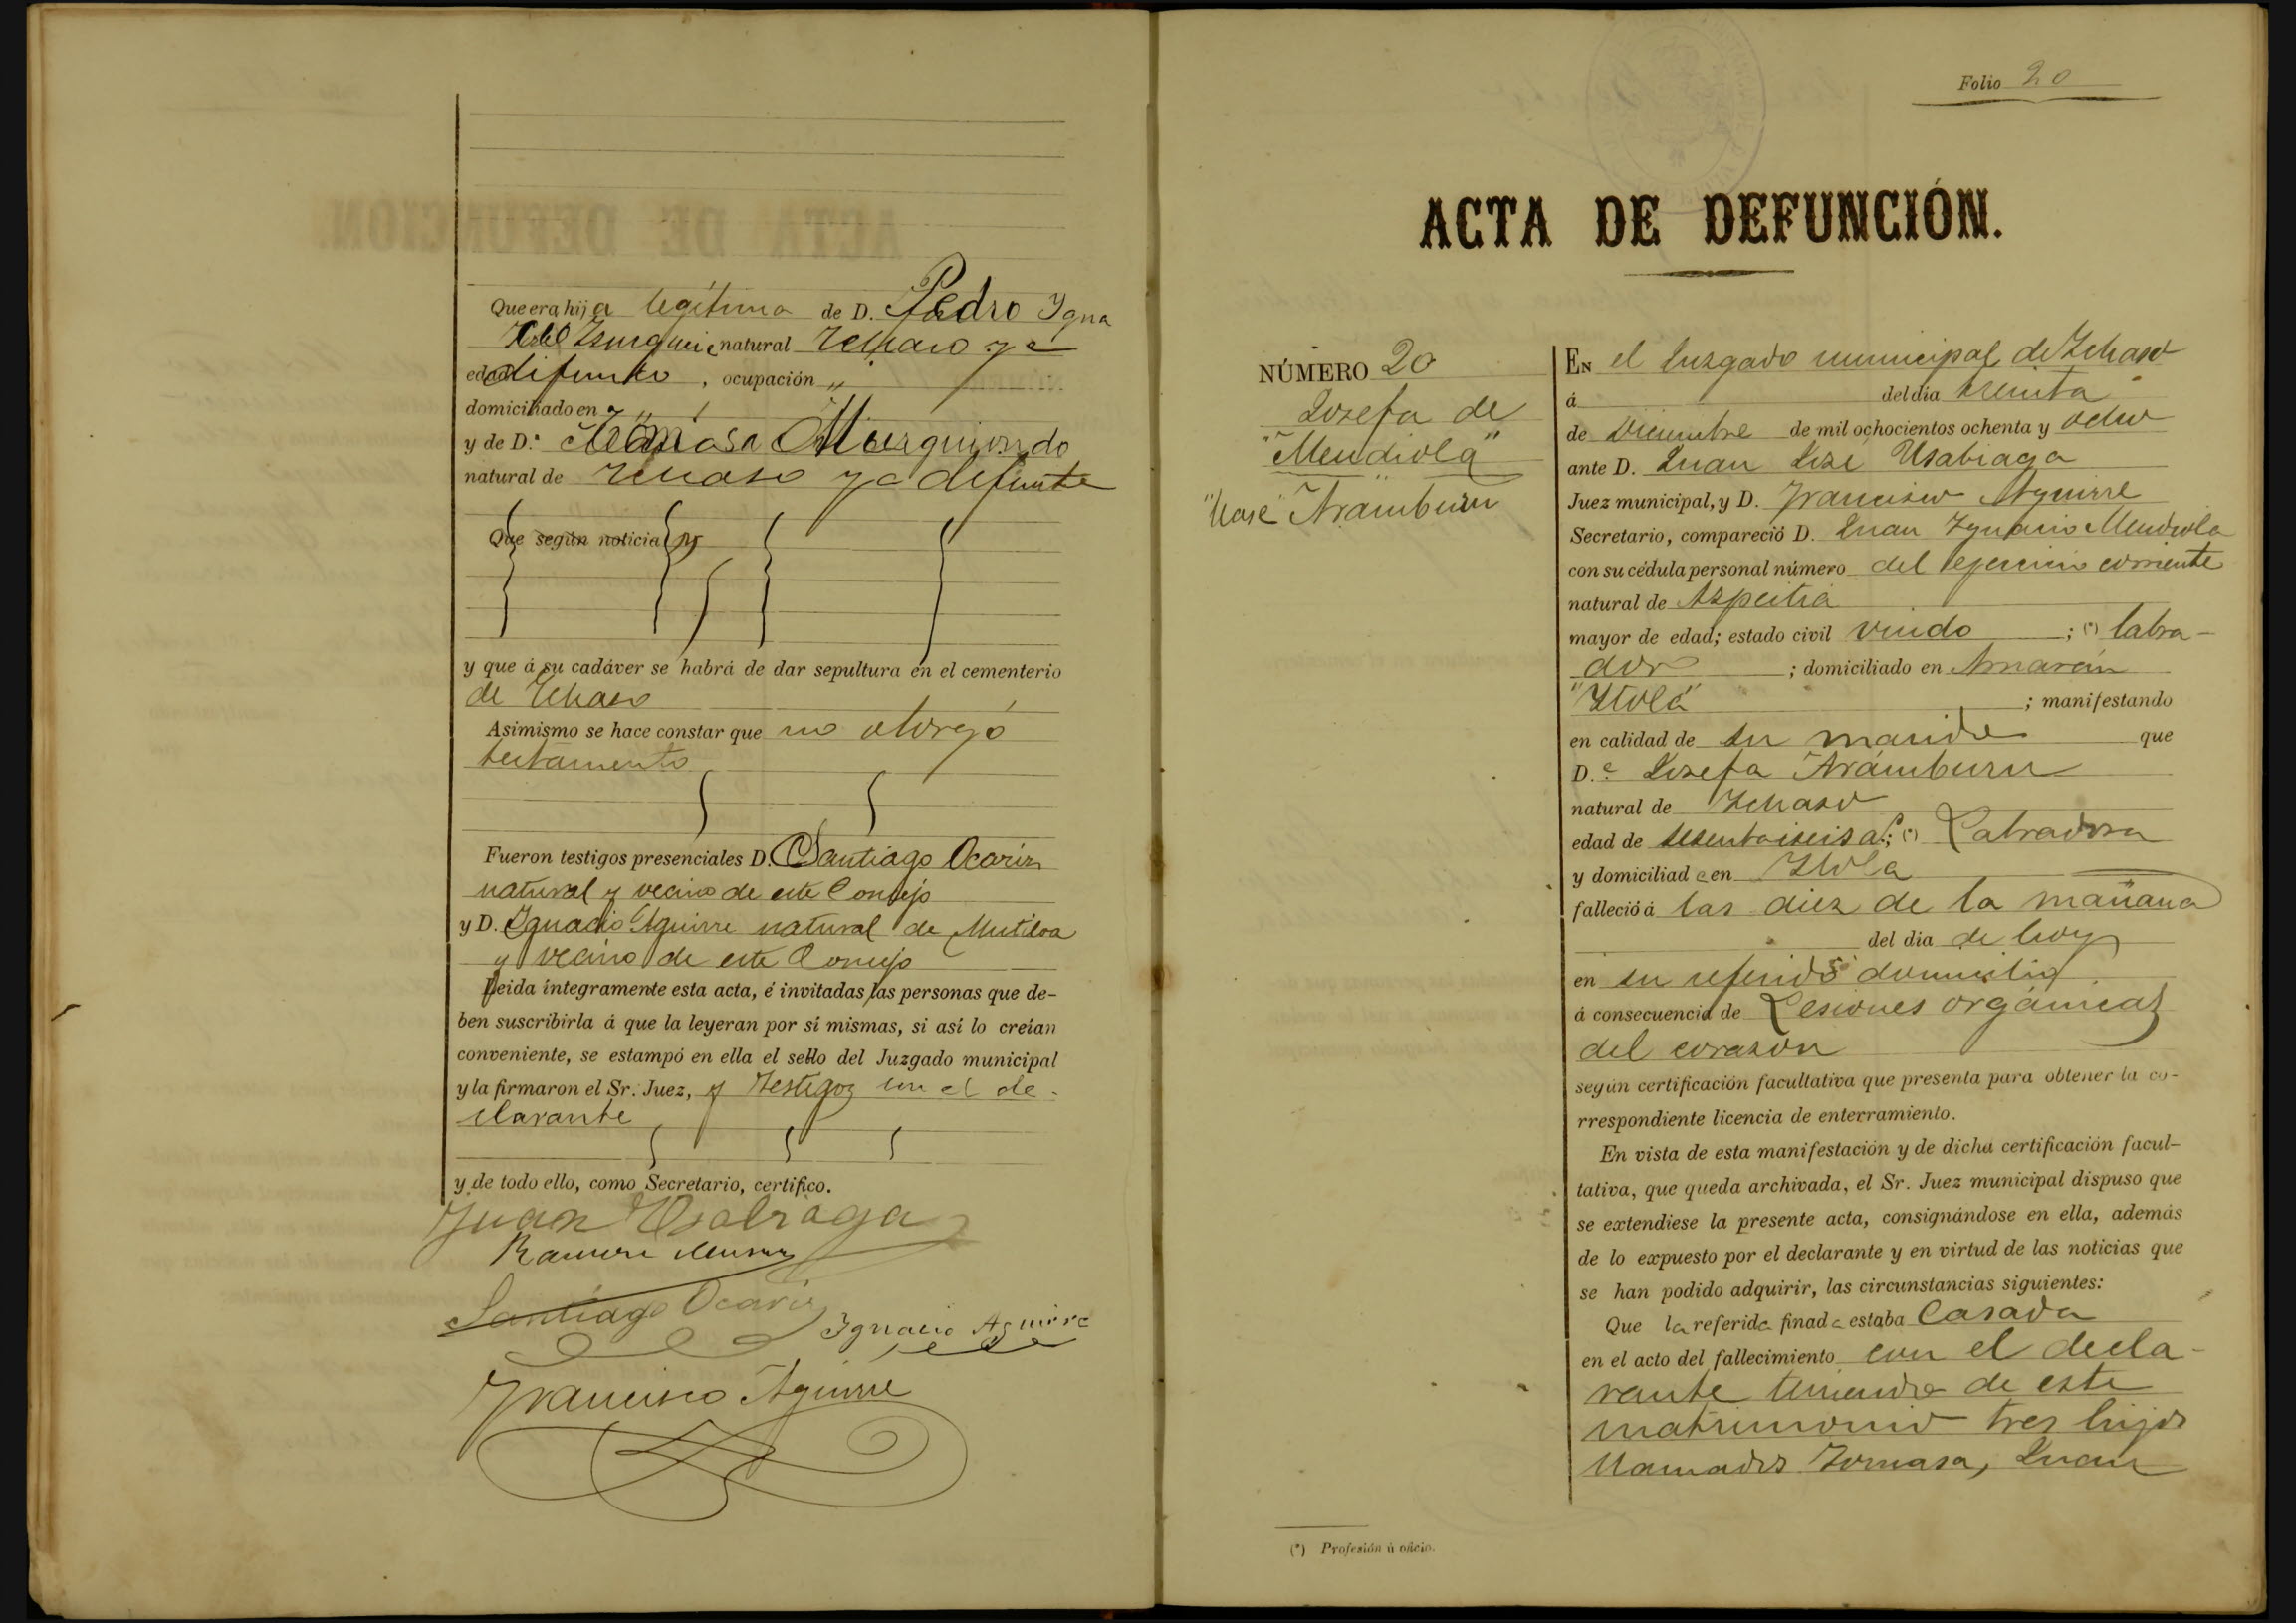 Que era hija legítima de D. Pedro Ygna
natural Ychaso ya
difunto, ocupación "
domiciliado en "
y de D.ª Murguiondo
natural de Ychaso ya difunta
Que según noticia
y que á su cadáver se habrá de dar sepultura en el cementerio
de Ychaso
Asimismo se hace constar que no otorgó
testamento
Fueron testigos presenciales D. Santiago Ocariz
natural y vecino de este Concejo
y D. Ygnacio Aguirre natural de Mutiloa
y vecino de este Concejo
Leida íntegramente esta acta, é invitadas las personas que de-
ben suscribirla á que la leyeran por sí mismas, si así lo creían
conveniente, se estampó en ella el sello del Juzgado municipal
y la firmaron el Sr. Juez, y Testigos con el de-
clarante
y de todo ello, como Secretario, certifico.
Juan Usabiaga
Ramon
Santiago Ocariz
Ygnacio Aguirre
Francisco Aguirre
Folio 20
ACTA DE DEFUNCIÓN.
NÚMERO 20
Josefa de
"Mendiola"
Aramburu
EN el Juzgado municipal de Ychaso
á del dia treinta
de Diciembre de mil ochocientos ochenta y ocho
ante D. Juan José Usabiaga
Juez municipal, y D. Francisco Aguirre
Secretario, compareció D. Juan Ygnacio Mendiola
con su cédula personal número del ejercicio corriente
natural de Azpeitia
mayor de edad; estado civil viudo ; (*) labra-
dor ; domiciliado en Arriarán
"Ytola" ; manifestando
en calidad de su marido que
D.ª Josefa Aramburu
natural de Ychaso
edad de sesentaiseis a.s; (*) Labradora
y domiciliada en Ytola
falleció á las diez de la mañana
del dia de hoy
en su referido domicilio
á consecuencia de Lesiones orgánicas
del corazon
según certificación facultativa que presenta para obtener la co-
rrespondiente licencia de enterramiento.
En vista de esta manifestación y de dicha certificación facul-
tativa, que queda archivada, el Sr. Juez municipal dispuso que
se extendiese la presente acta, consignándose en ella, además
de lo expuesto por el declarante y en virtud de las noticias que
se han podido adquirir, las circunstancias siguientes:
Que la referida finada estaba Casada
en el acto del fallecimiento con el decla-
rante teniendo de este
matrimonio tres hijos
llamados Tomasa, Juan
(*) Profesión ú oficio.